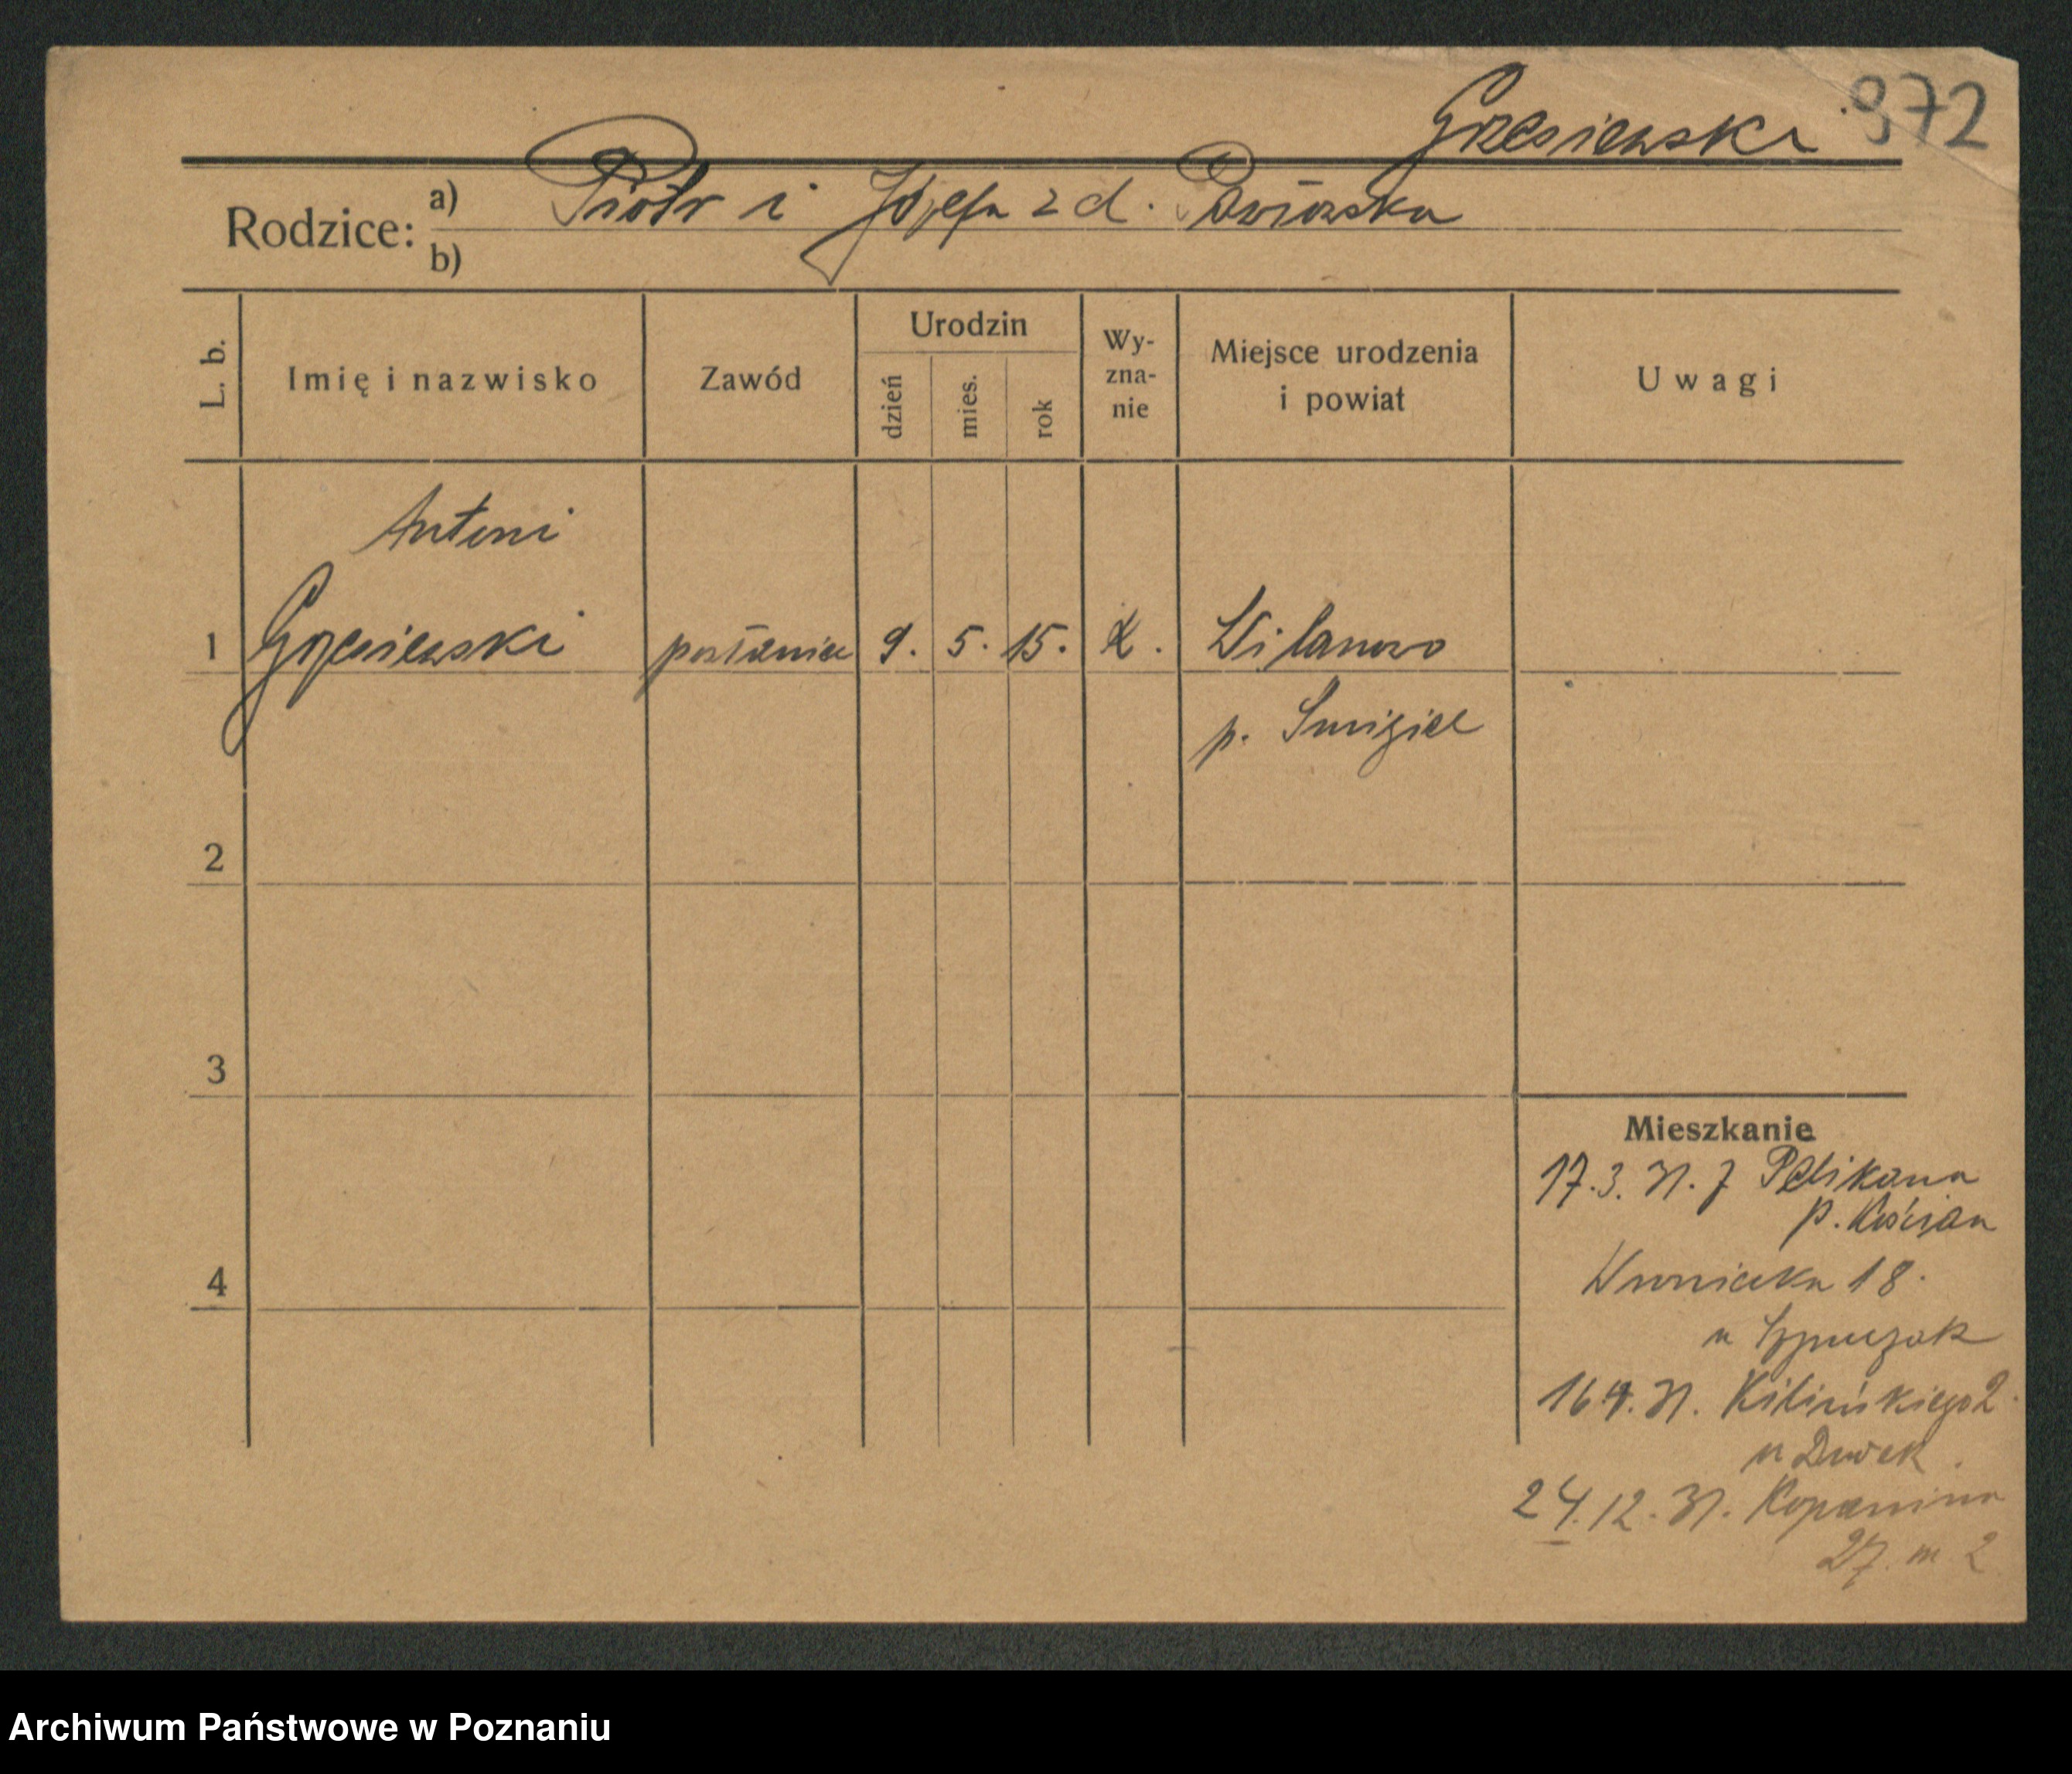 Grzesiewski 972
Rodzice: a) Piotr i Józefa z d.
b)
L. b.
Imię i nazwisko
Zawód
Urodzin
dzień
mies.
rok
Wy-
zna-
nie
Miejsce urodzenia
i powiat
Uwagi
Antoni
1 Grzesiewski posłaniec 9. 5. 15. k. Wilanowo
p. Śmigiel
2
3
4
Mieszkanie
17.3.31. z Pelikana
p. Kościan
Wroniecka 18.
u
16 31. Kilińskiego 2.
u
24.12.31. Kopanina
27 m 2
Archiwum Państwowe w Poznaniu